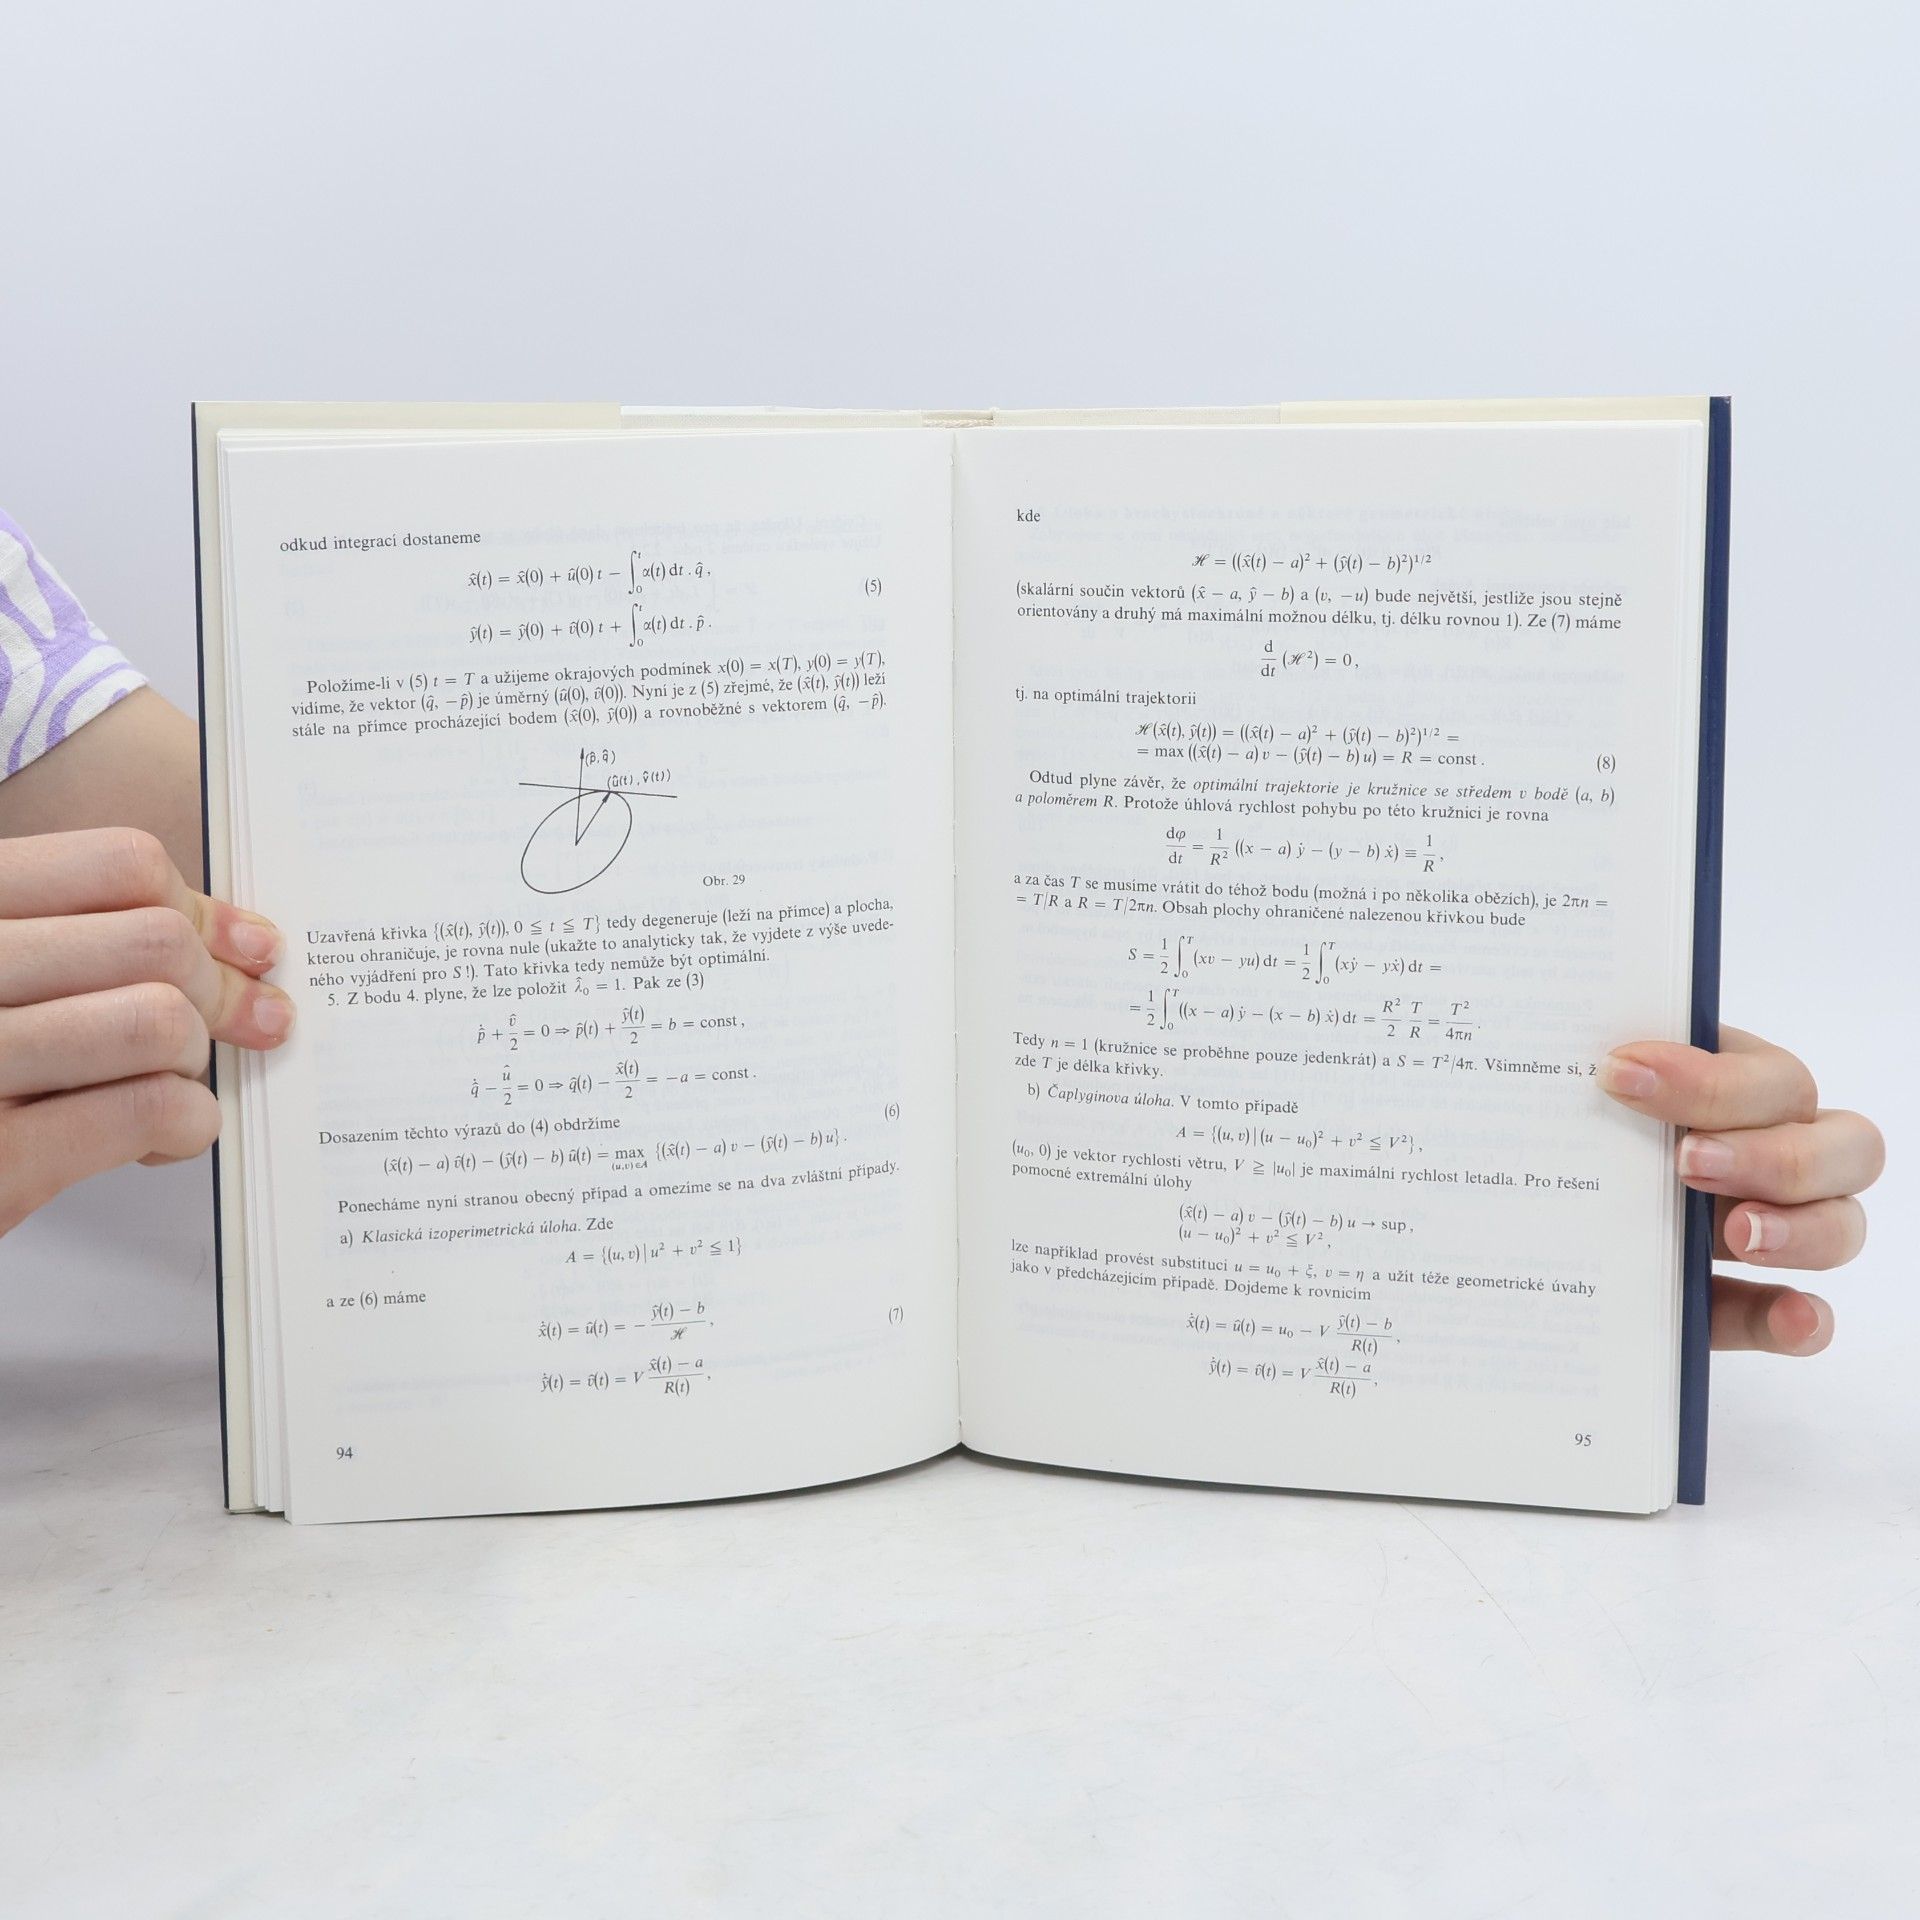 odkud integrací dostaneme
x̂(t) = x̂(0) + û(0) t − ∫₀ᵗ α(t) dt . q̂ ,
(5)
ŷ(t) = ŷ(0) + v̂(0) t + ∫₀ᵗ α(t) dt . p̂ .
Položíme-li v (5) t = T a užijeme okrajových podmínek x(0) = x(T), y(0) = y(T),
vidíme, že vektor (q̂, −p̂) je úměrný (û(0), v̂(0)). Nyní je z (5) zřejmé, že (x̂(t), ŷ(t)) leží
stále na přímce procházející bodem (x̂(0), ŷ(0)) a rovnoběžné s vektorem (q̂, −p̂).
(p̂, q̂)
(û(t), v̂(t))
Obr. 29
Uzavřená křivka {(x̂(t), ŷ(t)), 0 ≦ t ≦ T} tedy degeneruje (leží na přímce) a plocha,
kterou ohraničuje, je rovna nule (ukažte to analyticky tak, že vyjdete z výše uvede-
ného vyjádření pro S!). Tato křivka tedy nemůže být optimální.
5. Z bodu 4. plyne, že lze položit λ̂₀ = 1. Pak ze (3)
p̂̇ + v̂/2 = 0 ⇒ p̂(t) + ŷ(t)/2 = b = const ,
q̂̇ − û/2 = 0 ⇒ q̂(t) − x̂(t)/2 = −a = const .
Dosazením těchto výrazů do (4) obdržíme
(6)
(x̂(t) − a) v̂(t) − (ŷ(t) − b) û(t) = max_{(u,v)∈A} {(x̂(t) − a) v − (ŷ(t) − b) u} .
Ponecháme nyní stranou obecný případ a omezíme se na dva zvláštní případy.
a) Klasická izoperimetrická úloha. Zde
A = {(u, v) | u² + v² ≦ 1}
a ze (6) máme
x̂̇(t) = û(t) = − (ŷ(t) − b)/ℋ ,
(7)
ŷ̇(t) = v̂(t) = V (x̂(t) − a)/R(t) ,
94
kde
ℋ = ((x̂(t) − a)² + (ŷ(t) − b)²)^{1/2}
(skalární součin vektorů (x̂ − a, ŷ − b) a (v, −u) bude největší, jestliže jsou stejně
orientovány a druhý má maximální možnou délku, tj. délku rovnou 1). Ze (7) máme
d/dt (ℋ²) = 0 ,
tj. na optimální trajektorii
ℋ(x̂(t), ŷ(t)) = ((x̂(t) − a)² + (ŷ(t) − b)²)^{1/2} =
= max ((x̂(t) − a) v − (ŷ(t) − b) u) = R = const .
(8)
Odtud plyne závěr, že optimální trajektorie je kružnice se středem v bodě (a, b)
a poloměrem R. Protože úhlová rychlost pohybu po této kružnici je rovna
dφ/dt = 1/R² ((x − a) ẏ − (y − b) ẋ) ≡ 1/R ,
a za čas T se musíme vrátit do téhož bodu (možná i po několika obězích), je 2πn =
= T/R a R = T/2πn. Obsah plochy ohraničené nalezenou křivkou bude
S = 1/2 ∫₀ᵀ (xv − yu) dt = 1/2 ∫₀ᵀ (xẏ − yẋ) dt =
= 1/2 ∫₀ᵀ ((x − a) ẏ − (x − b) ẋ) dt = R²/2 T/R = T²/4πn .
Tedy n = 1 (kružnice se proběhne pouze jedenkrát) a S = T²/4π. Všimněme si, ž
zde T je délka křivky.
b) Čaplyginova úloha. V tomto případě
A = {(u, v) | (u − u₀)² + v² ≦ V²} ,
(u₀, 0) je vektor rychlosti větru, V ≧ |u₀| je maximální rychlost letadla. Pro řešení
pomocné extremální úlohy
(x̂(t) − a) v − (ŷ(t) − b) u → sup ,
(u − u₀)² + v² ≦ V² ,
lze například provést substituci u = u₀ + ξ, v = η a užít téže geometrické úvahy
jako v předcházejícím případě. Dojdeme k rovnicím
x̂̇(t) = û(t) = u₀ − V (ŷ(t) − b)/R(t) ,
ŷ̇(t) = v̂(t) = V (x̂(t) − a)/R(t) ,
95